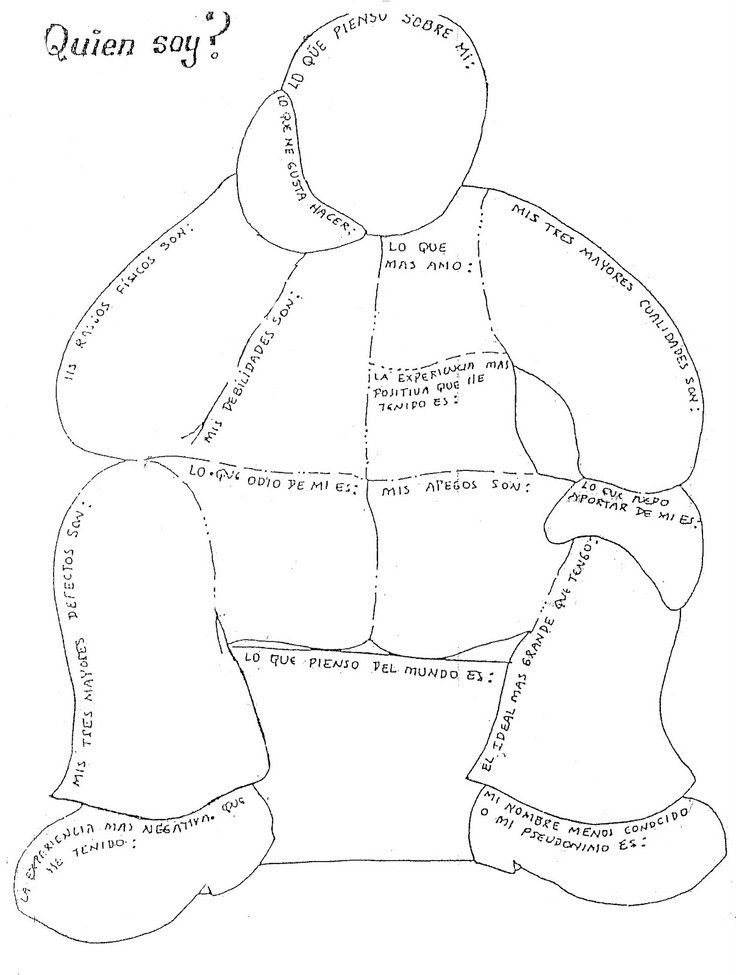 Quien soy?
LO QUE PIENSO SOBRE MI:
LO QUE ME GUSTA HACER:
MIS TRES MAYORES CUALIDADES SON:
LO QUE
MAS AMO:
MIS RASGOS FÍSICOS SON:
MIS DEBILIDADES SON:
LA EXPERIENCIA MAS
POSITIVA QUE HE
TENIDO ES:
LO QUE ODIO DE MI ES:
MIS APEGOS SON:
LO QUE PUEDO
APORTAR DE MI ES:
MIS TRES MAYORES DEFECTOS SON:
EL IDEAL MAS GRANDE QUE TENGO:
LO QUE PIENSO DEL MUNDO ES:
LA EXPERIENCIA MAS NEGATIVA. QUE
HE TENIDO:
MI NOMBRE MENOS CONOCIDO
O MI PSEUDONIMO ES: